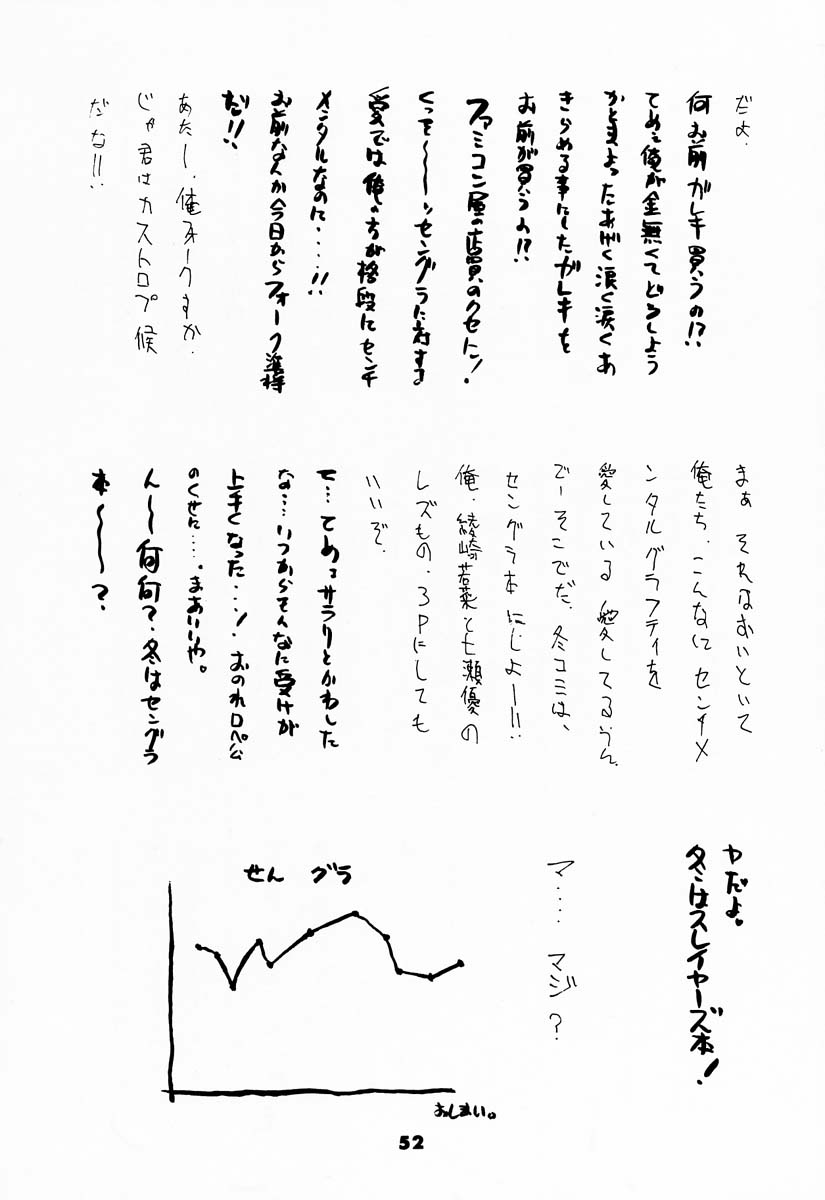 だよ.
何お前ガレキ買うの!?
てめぇ俺が金無くてどうしよう
かとまよったあげく泪く涙くあ
きらめる事にしたガレキを
お前が買うの!?
ファミコン屋の店買のクセに!・
くっそ〜〜〜ッセングラに対する
愛では俺の方が格段にセンチ
メンタルなのに・・・・!!
お前なんか今日からフォーク准将
だ!!
あたー、俺フォークすか.
じゃ君はカストロプ候
だな!!
まぁ それはおいといて
俺たち、こんなに センチメ
ンタル グラフティを
愛している 愛してるうん.
でーそこでだ、冬コミは、
セングラ本 にしよー!!
俺、綾崎若菜と七瀬優の
レズもの、3Pにしても
いいぞ.
て… てめェ サラリとかわした
な・・・いつからそんなに受けが
上手くなった・・・! おのれロペ公
のくせに・・・・。まあいいや。
ん〜〜何何?・冬はセングラ
本〜〜〜?.
ヤだよ。
冬はスレイヤーズ本!
マ・・・・ マジ?
せん グラ
おしまい。
52